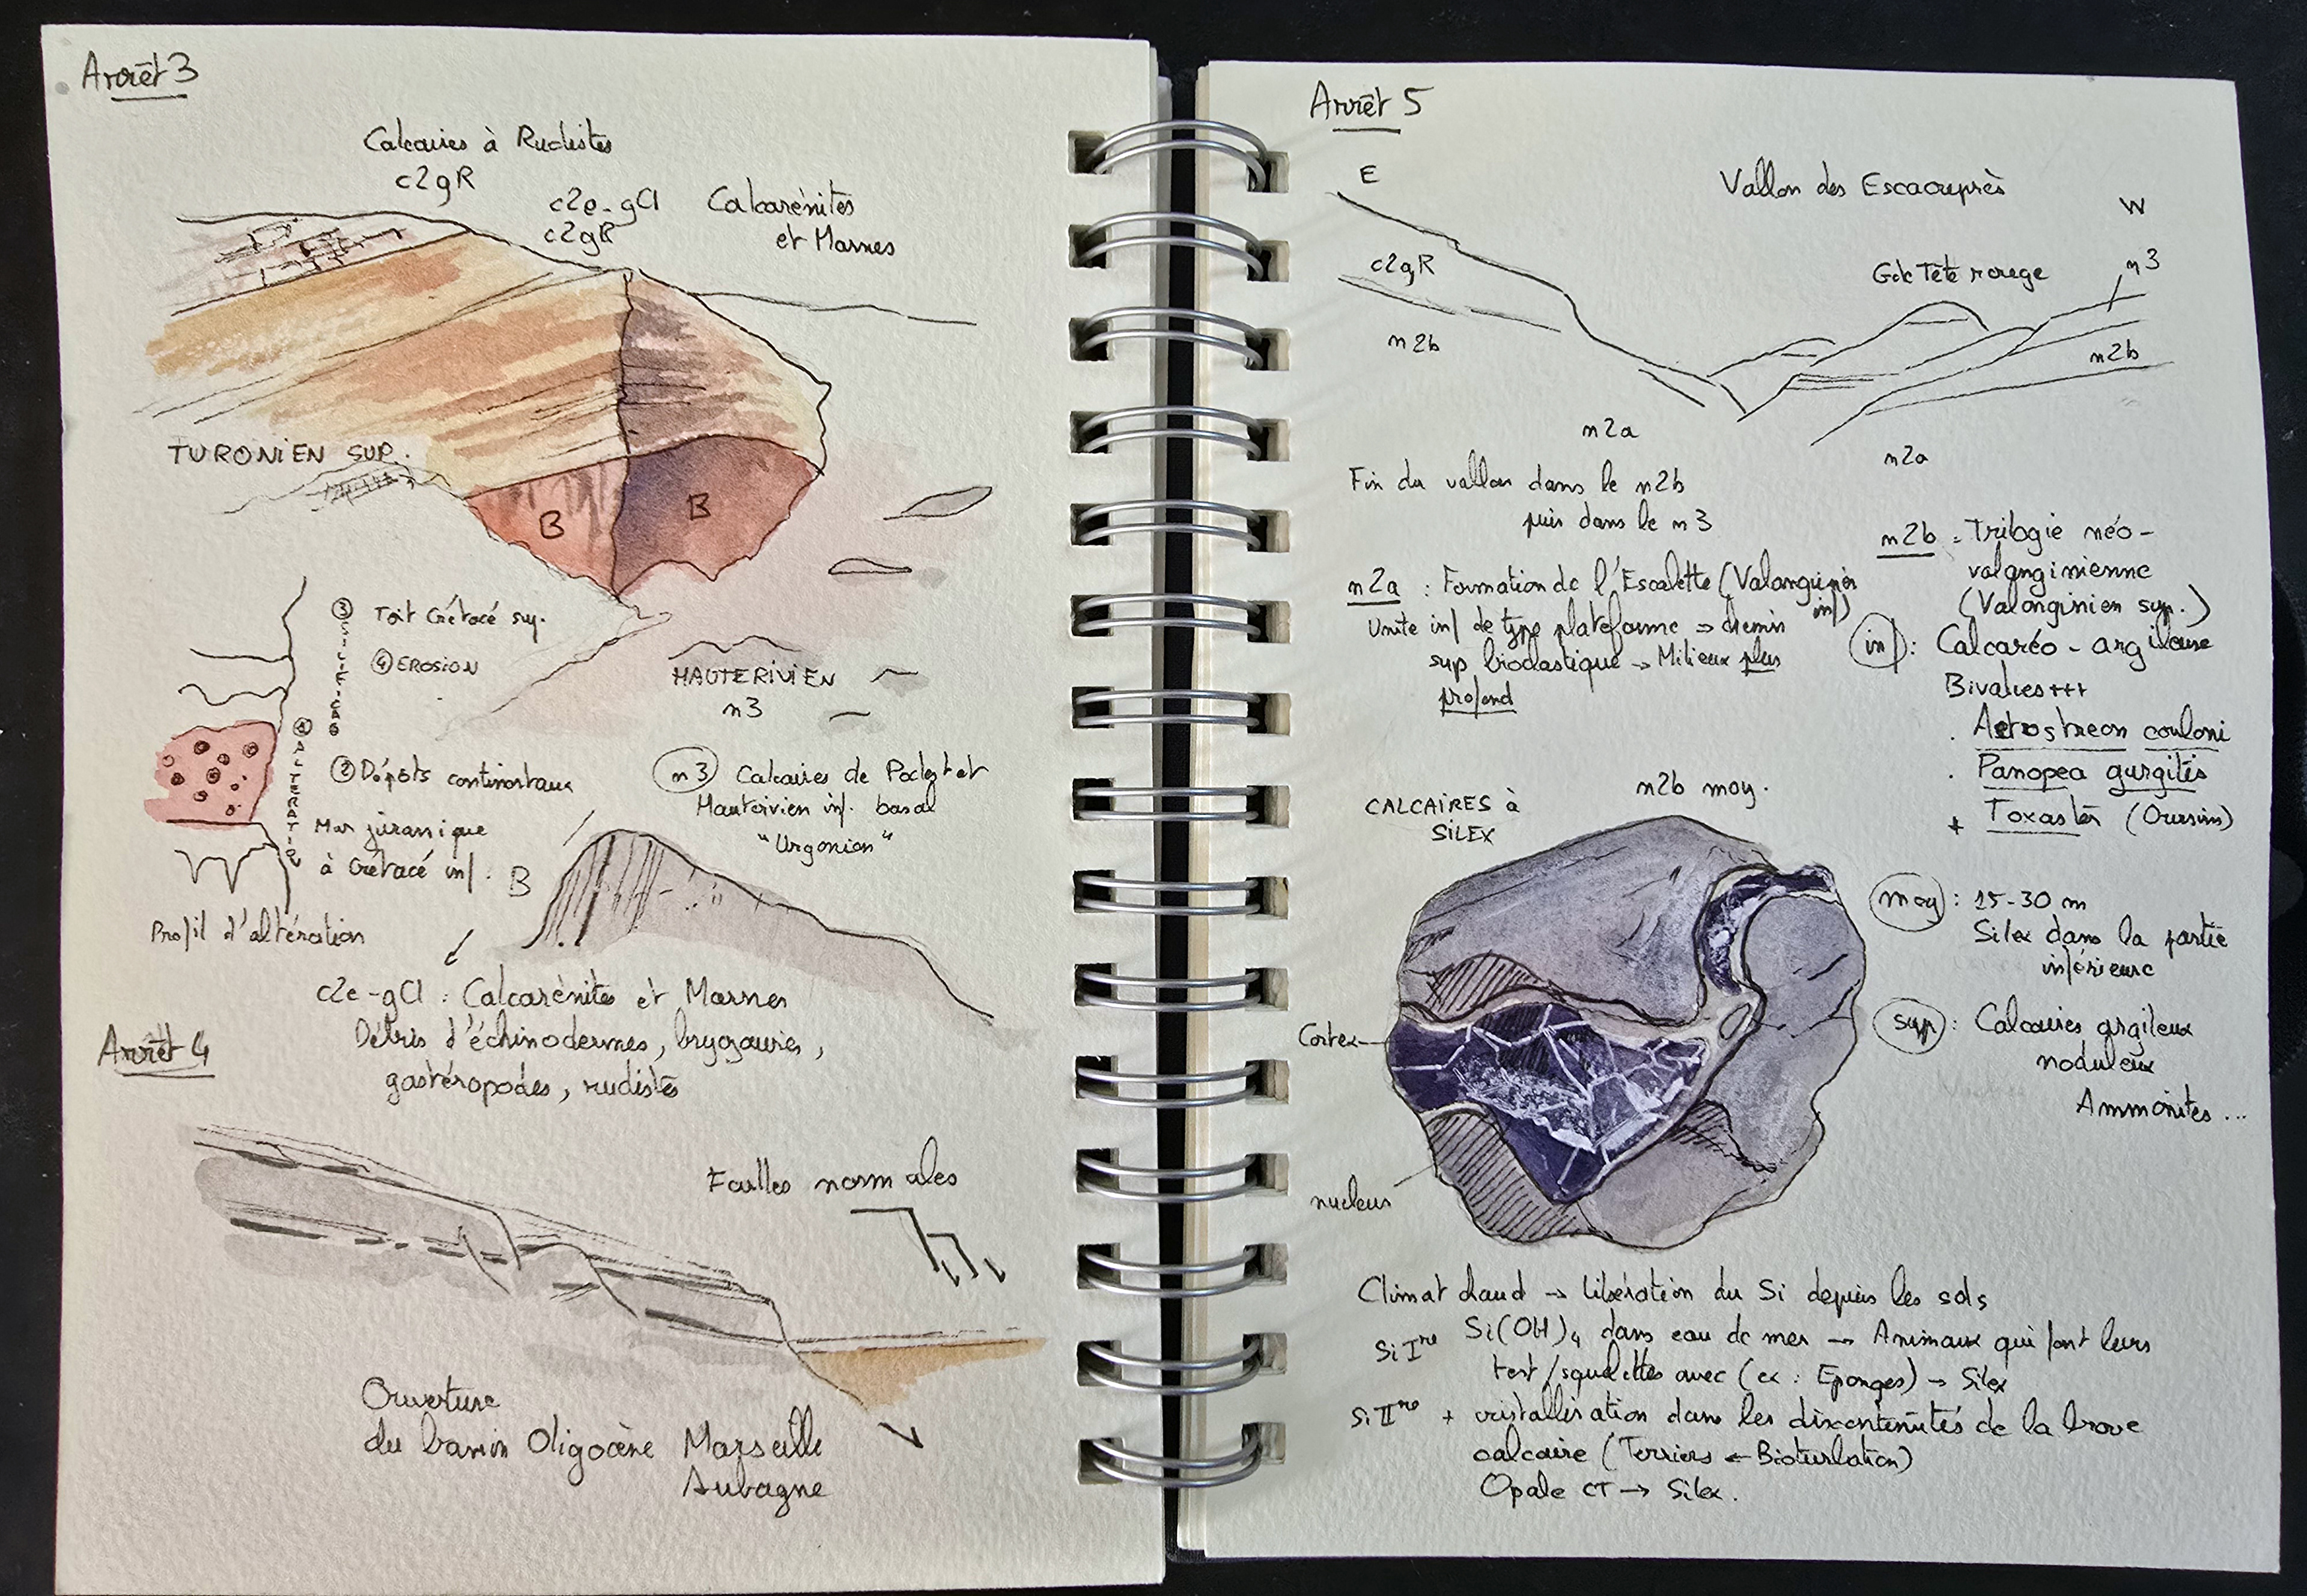 Arrêt 3
Calcaires à Rudistes
c2gR
c2e-gCl Calcarénites
c2gR et Marnes
TURONIEN SUP.
B
B
③ Toit Crétacé sup.
④ EROSION
HAUTERIVIEN
n3
① ALTERATIO
② Dépôts continentaux
Mar jurassique
à Crétacé inf.
Profil d'altération
n3 Calcaires de
Hauterivien inf. basal
"Urgonien"
B
c2e-gCl : Calcarénites et Marnes
Débris d'échinodermes, bryozaires,
gastéropodes, rudistes
Arrêt 4
Failles normales
Ouverture
du bassin Oligocène Marseille
Aubagne
Arrêt 5
E
Vallon des Escaouprès
W
c2gR
Gde Tête rouge
n3
n2b
n2b
n2a
n2a
Fin du vallon dans le n2b
puis dans le n3
n2a : Formation de l'Escalette (Valanginien
inf)
Unité inf de type plateforme ⇒ chemin
sup bioclastique → Milieux plus
profond
n2b = Trilogie néo-
valanginienne
(Valanginien sup.)
inf : Calcaréo-argileuse
Bivalves +++
. Aetostreon couloni
. Panopea gurgitis
+ Toxaster (Oursins)
moy : 15-30 m
Silex dans la partie
inférieure
sup : Calcaires argileux
noduleux
Ammonites ...
n2b moy.
CALCAIRES à
SILEX
Cortex
nucleus
Climat chaud → libération du Si depuis les sols
Si Iʳᵉ Si(OH)₄ dans eau de mer → Animaux qui font leurs
test/squelettes avec (ex : Eponges) → Silex
Si IIʳᵉ + cristallisation dans les discontinuités de la boue
calcaire (Terriers ← Bioturbation)
Opale CT → Silex.